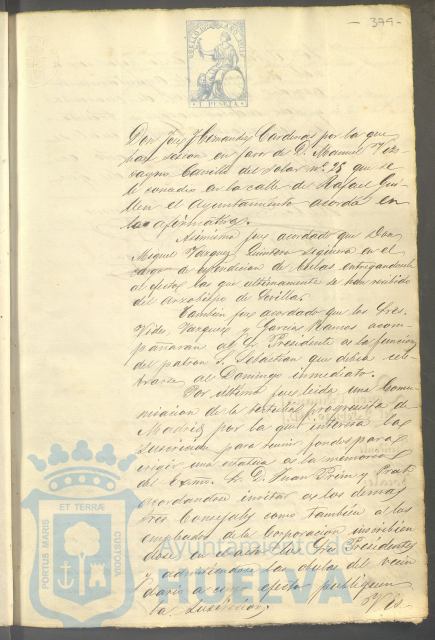 - 379 -
SELLO DE
1 PESETA
Don José Hernandez Cardenas por la que
hace cesion en favor de D. Manuel Viz-
cayno Carrillo del solar nº. 25 que se
le concedio en la calle de Rafael Gui-
llen el ayuntamiento acordó en
la afirmativa.
Asimismo fue acordado que Don
Miguel Vazquez Quintero siguiera en el
cargo de espendicion de bulas entregandosele
al efecto las que ultimamente se han recibido
del arzobispo de Sevilla.
Tambien fue acordado que los Sres.
Vides, Vazquez y Garcia Ramos acom-
pañaran al Sr. Presidente a la funcion
del patron S. Sebastian que debia cele-
brarse el Domingo inmediato.
Por ultimo fue leida una Comu-
nicacion de la tertulia progresista de
Madrid por la que interesa la
suscricion para reunir fondos para
erigir una estatua a la memoria
del Exmo. Sr. D. Juan Prim y Prats
acordandose invitar a los demas
Sres Concejales como tambien a los
empleados de la Corporacion inscribien
dose en el acto los Sres Presidente
y admitiendose los obulos del vecin
dario a cuyo efecto publiquese
la suscricion,
PORTUS MARIS
ET TERRÆ
CUSTODIA
Ayuntamiento de
HUELVA